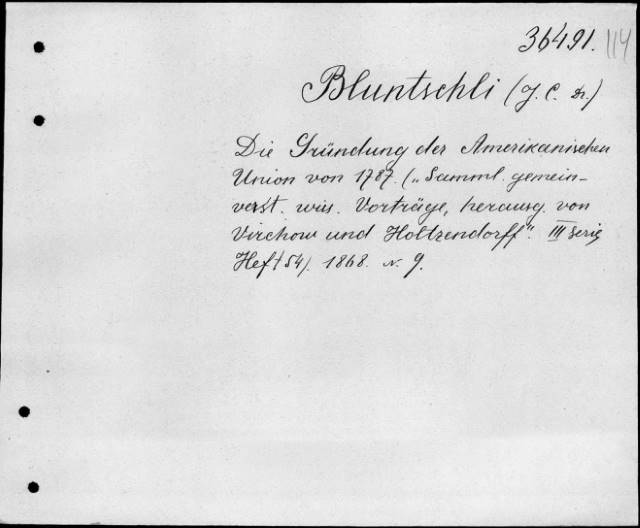 36491. 114
Bluntschli (J. C. Dr.)
Die Gründung der Amerikanischen
Union von 1787. („Samml. gemein-
verst. wis. Vorträge, herausg. von
Virchow und Holtzendorff". III Serie
Heft 54). 1868. N. 9.